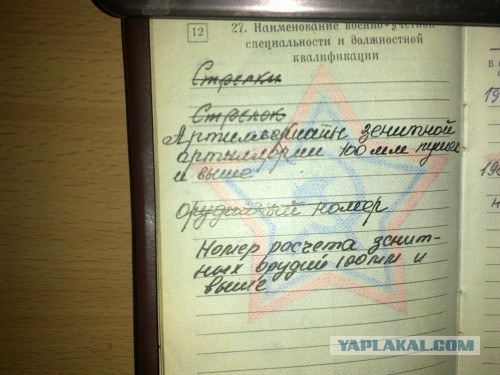 12
27. Наименование военно-учетной
специальности и должностной
квалификации
Стрелки
Стрелок
Артиллерийтн зенитной
артиллерии 100 мм пушек
и выше
Орудийный номер
Номер расчета зенит-
ных орудий 100 мм и
выше
в а
19
198
н
YAPLAKAL.COM